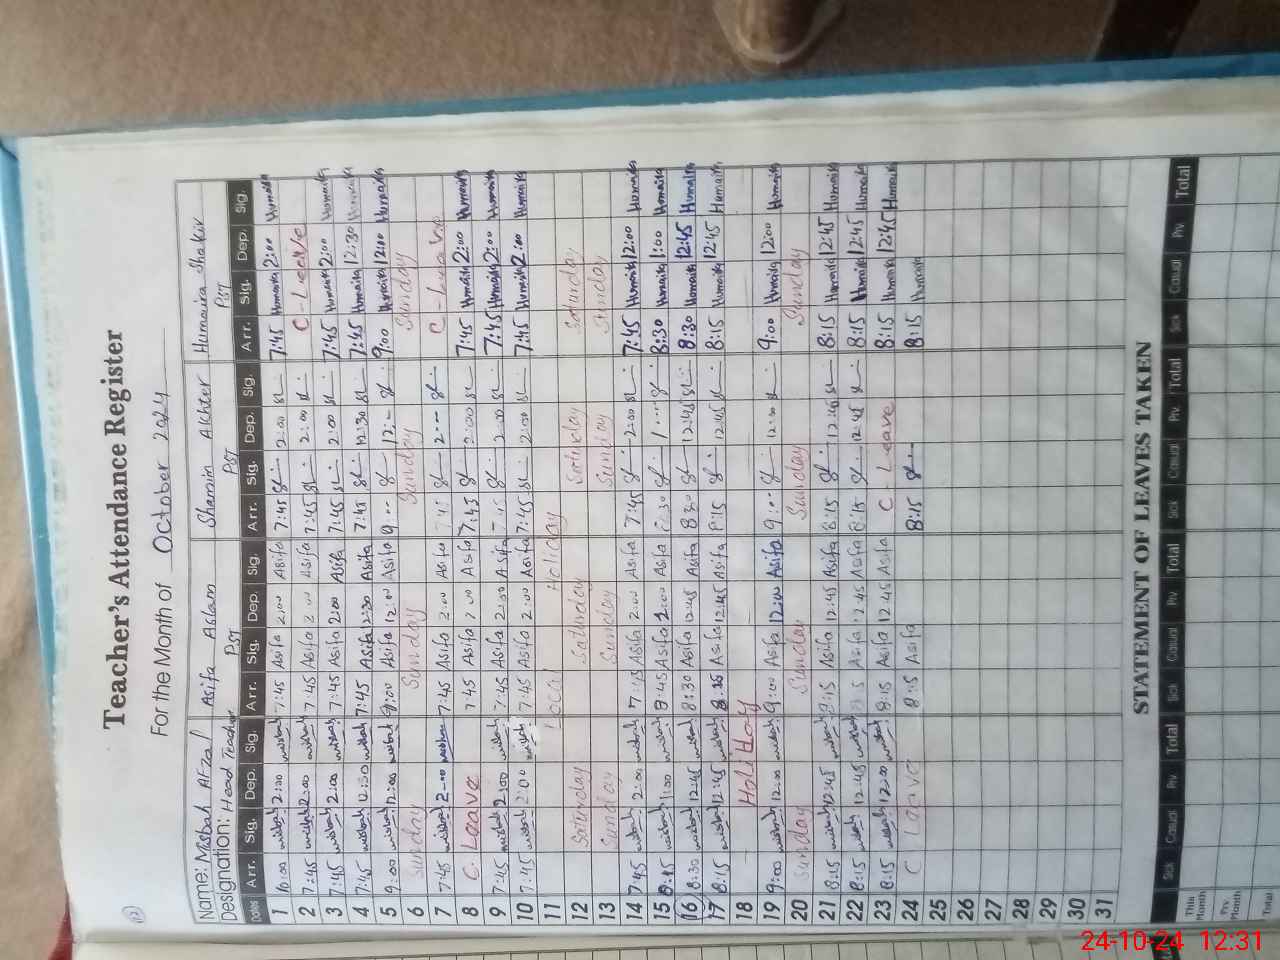 Teacher's Attendance Register
For the Month of October 2024
Name: Misbah Afzal Asifa Aslam Shamim Akhter Humaira Shakir
Designation: Head Teacher PST PST PST
Dates Arr. Sig. Dep. Sig. Arr. Sig. Dep. Sig. Arr. Sig. Dep. Sig. Arr. Sig. Dep. Sig.
1 10:00 misbah 2:00 misbah 7:45 Asifa 2:00 Asifa 7:45 2:00 7:45 Humaira 2:00 Humaira
2 7:45 misbah 2:00 misbah 7:45 Asifa 2:00 Asifa 7:45 2:00 C-Leave
3 7:45 misbah 2:00 misbah 7:45 Asifa 2:00 Asifa 7:45 2:00 7:45 Humaira 2:00 Humaira
4 7:45 misbah 12:30 misbah 7:45 Asifa 12:30 Asifa 7:45 12:30 7:45 Humaira 12:30 Humaira
5 9:00 misbah 12:00 misbah 9:00 Asifa 12:00 Asifa 9:-- 12:-- 9:00 Humaira 12:00 Humaira
6 Sunday Sunday Sunday Sunday
7 7:45 misbah 2:00 misbah 7:45 Asifa 2:00 Asifa 7:45 2:-- C-Leave
8 C. Leave 7:45 Asifa 2:00 Asifa 7:45 2:00 7:45 Humaira 2:00 Humaira
9 7:45 misbah 2:00 misbah 7:45 Asifa 2:00 Asifa 7:45 2:00 7:45 Humaira 2:00 Humaira
10 7:45 misbah 2:00 misbah 7:45 Asifa 2:00 Asifa 7:45 2:00 7:45 Humaira 2:00 Humaira
11 Local Holiday
12 Saturday Saturday Saturday Saturday
13 Sunday Sunday Sunday Sunday
14 7:45 misbah 2:00 misbah 7:45 Asifa 2:00 Asifa 7:45 2:00 7:45 Humaira 12:00 Humaira
15 8:45 misbah 1:00 misbah 8:45 Asifa 1:00 Asifa 8:30 1:-- 8:30 Humaira 1:00 Humaira
16 8:30 misbah 12:45 misbah 8:30 Asifa 12:45 Asifa 8:30 12:45 8:30 Humaira 12:45 Humaira
17 8:15 misbah 12:45 misbah 8:15 Asifa 12:45 Asifa 8:15 12:45 8:15 Humaira 12:45 Humaira
18 Holiday
19 9:00 misbah 12:00 misbah 9:00 Asifa 12:00 Asifa 9:-- 12:00 9:00 Humaira 12:00 Humaira
20 Sunday Sunday Sunday Sunday
21 8:15 misbah 12:45 misbah 8:15 Asifa 12:45 Asifa 8:15 12:45 8:15 Humaira 12:45 Humaira
22 8:15 misbah 12:45 misbah Asifa 12:45 Asifa 8:15 12:45 8:15 Humaira 12:45 Humaira
23 8:15 misbah 12:00 misbah 8:15 Asifa 12:45 Asifa C-Leave 8:15 Humaira 12:45 Humaira
24 C Leave 8:15 Asifa 8:15 8:15 Humaira
25
26
27
28
29
30
31
STATEMENT OF LEAVES TAKEN
Sick Casual Prv. Total Sick Casual Prv Total Sick Casual Prv. Total Sick Casual Prv. Total
This Month
Prv. Month
Total
24-10-24 12:31